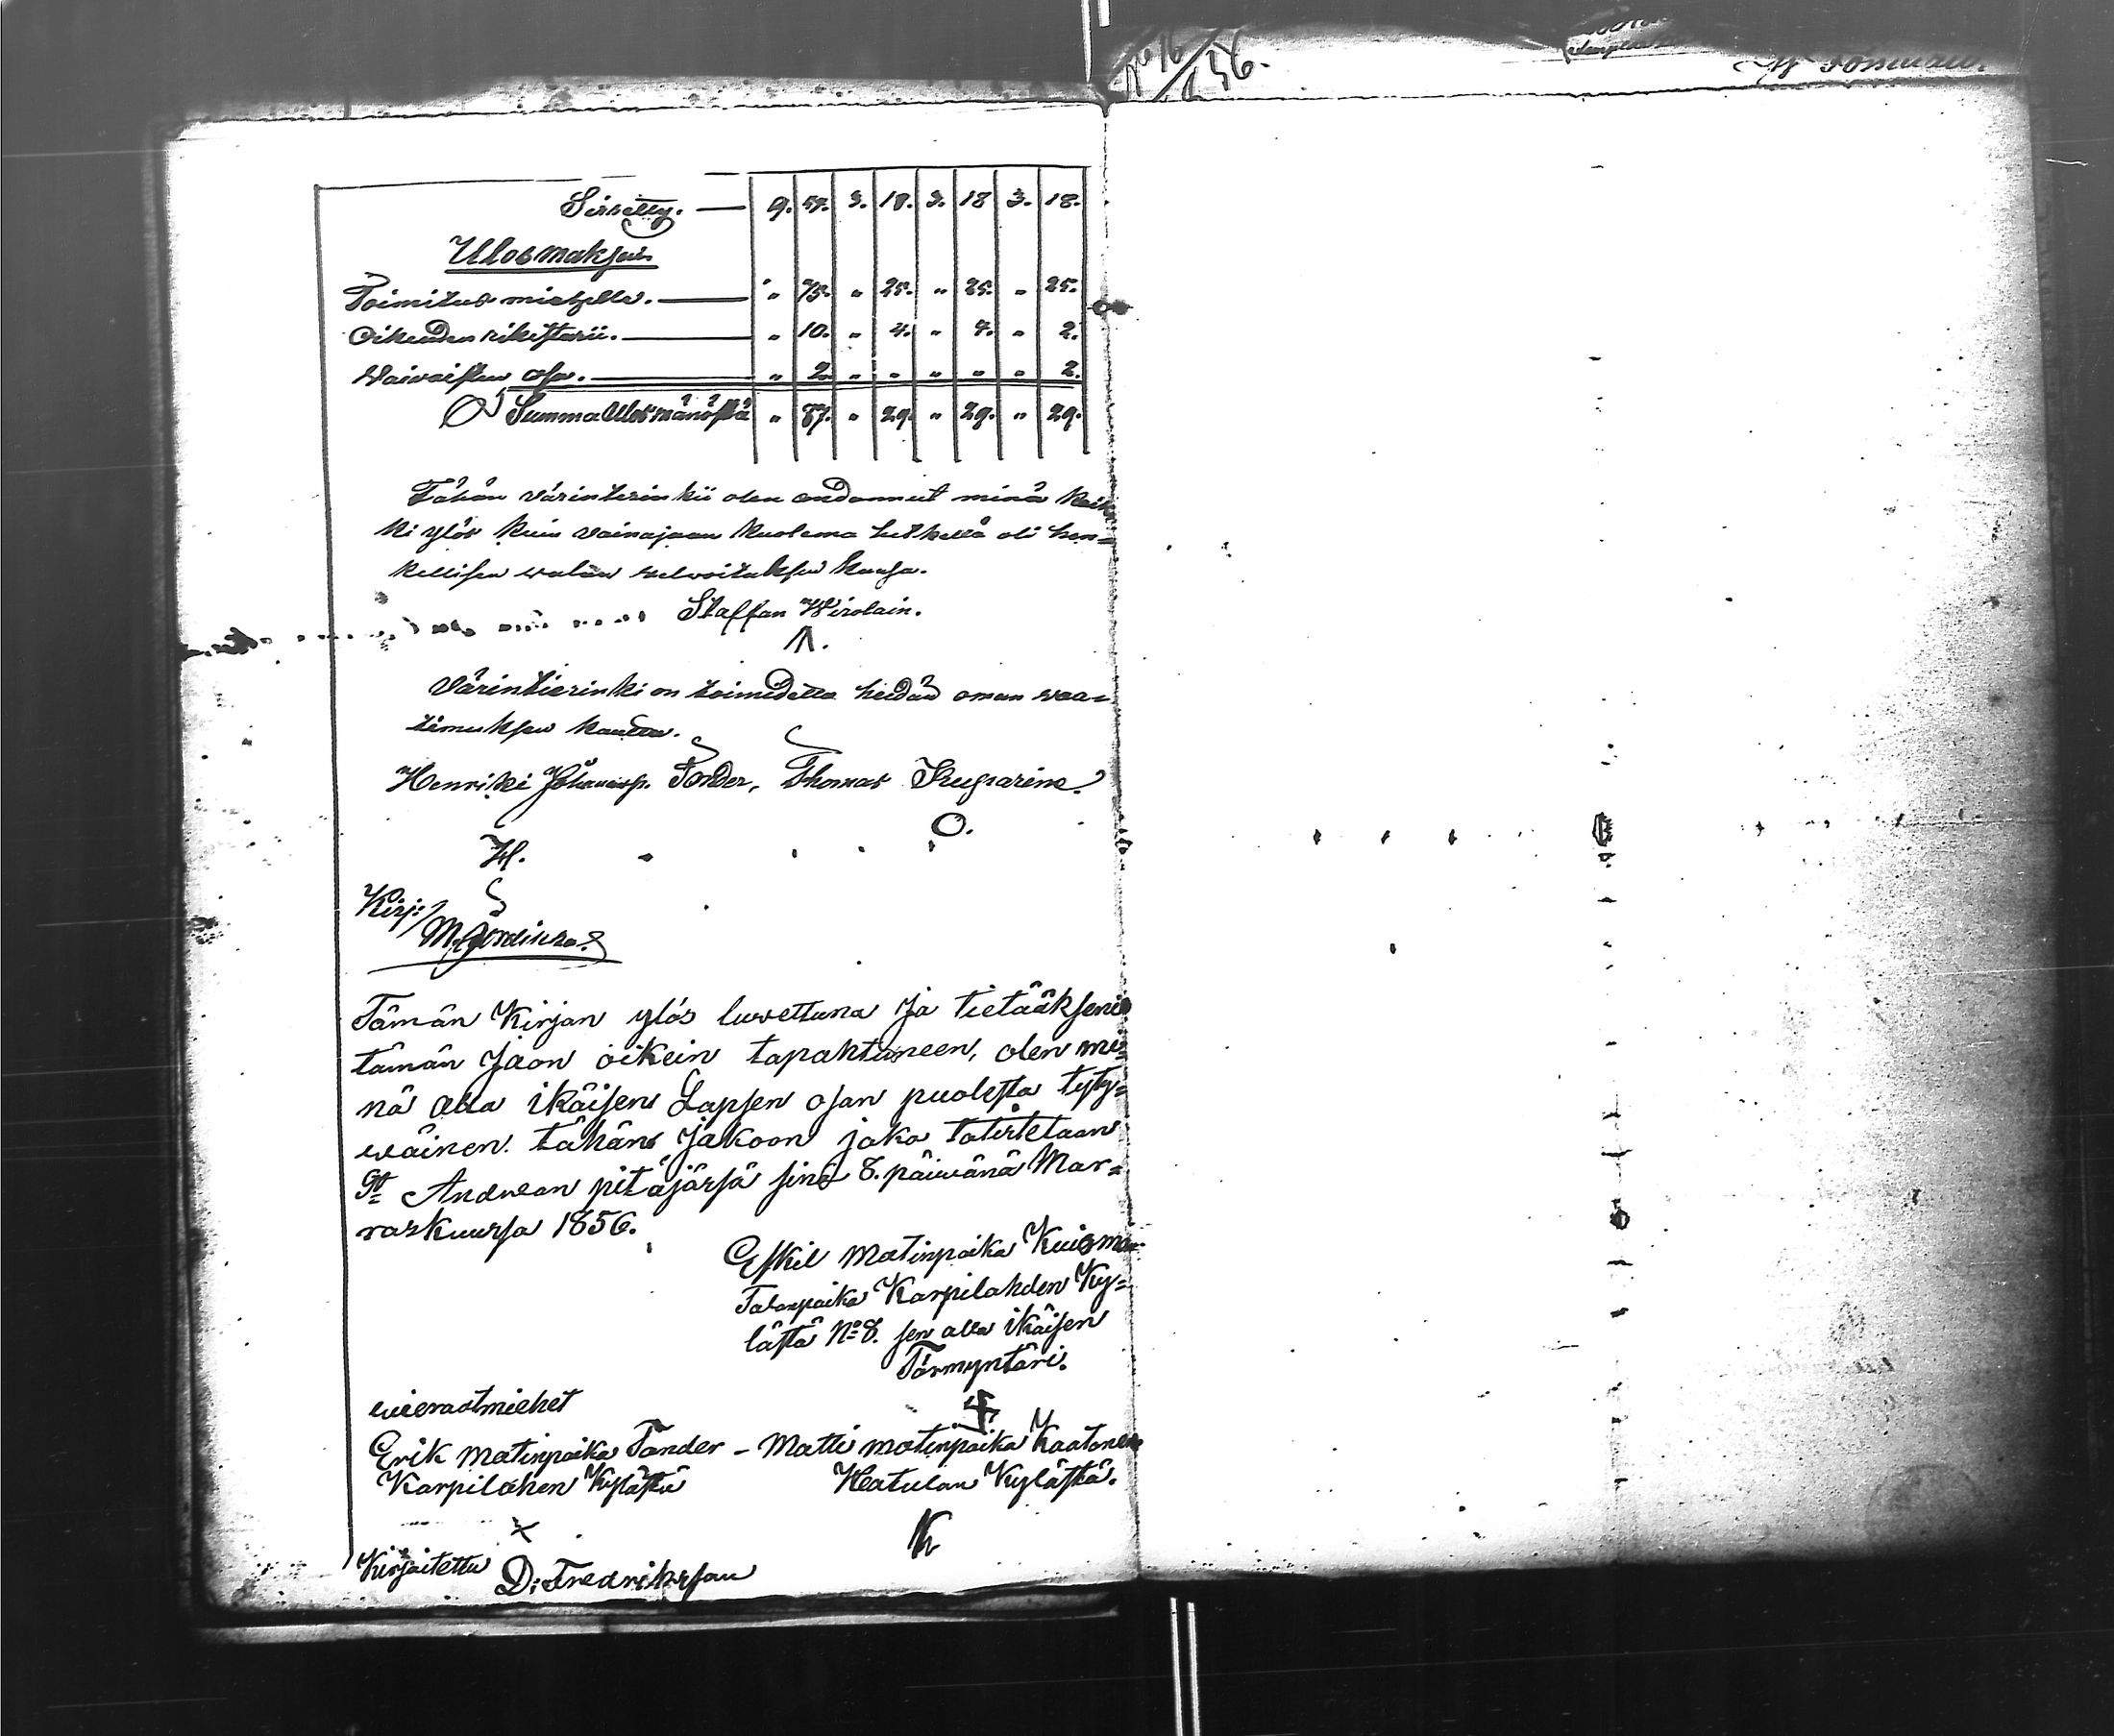 No 16
Siirretty. — 9. 57. 3. 18. 3. 18 3. 18.
Ulosmaksun
Toimitus miehelle. — " 75. " 25. " 25. " 25.
Oikeuden rikistarii. — " 10. " 4. " 4. " 2.
Waivaisten osa. — " 2. " " " " " 2.
Summa Ulosmänöstä " 87. " 29. " 29. " 29.
Tähän värinterinkii olen andannut minä kaik
ki ylös kuin vainajaan kuolema hetkellä oli hen=
kellisen walan velvoituksen kansa.
Staffan Wirolain.
Värintierinki on toimidettu heidän oman waa=
timuksen kautta.
Henriki Johanesp. Tonder, Thomas
H. O.
Kirj:
M.
Tämän Kirjan ylös luvettuna Ja tietääkseni
tämän Jaon oikein tapahtuneen, olen mi=
nä alla ikäisen Lapsen osan puolesta tyty=
wäinen. tähän Jakoon joka
St Andrean pitäjässä sinä 8. päiwänä Mar=
raskuussa 1856.
Eskil Matinpoika Kuisma
Talonpoika Karpilahden Ky=
lästä No 8. sen alla ikäisen
Förmyntäri.
wieraatmiehet
Erik Matinpoika Tander – Matti Matinpoika Kaatonen
Karpilahen Kylästä Heatulan Kylästä.
x K
Kirjoitettu D: Fredrikssan